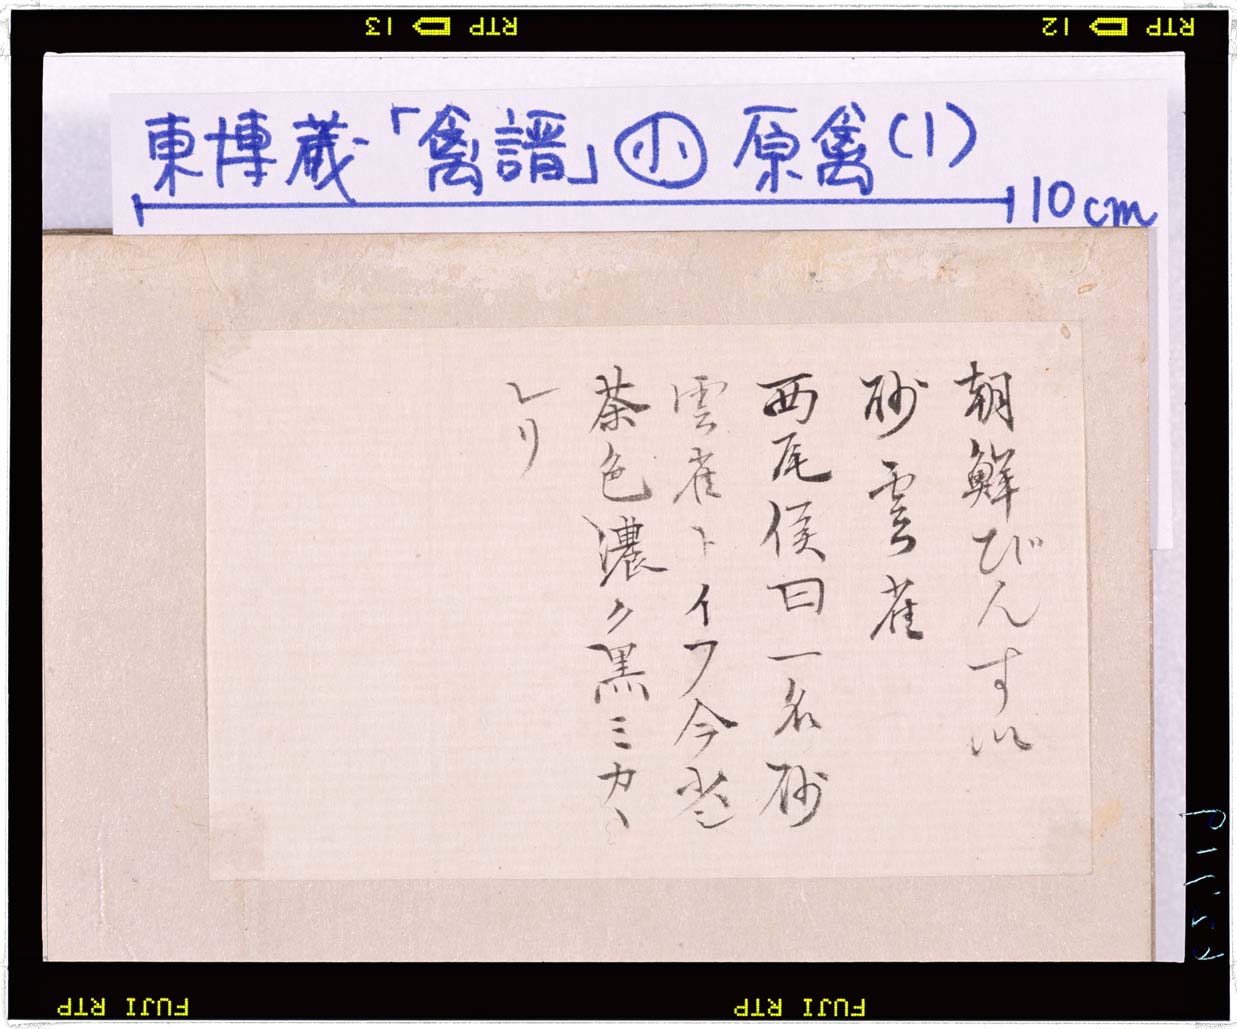 RTP ▷ 13
RTP ▷ 12
東博蔵「禽譜」小 原禽(1)
10cm
朝鮮びんすい
砂雲雀
西尾侯曰一名砂
雲雀トイフ今
茶色濃ク黒ミカヽ
レリ
FUJI RTP
FUJI RTP